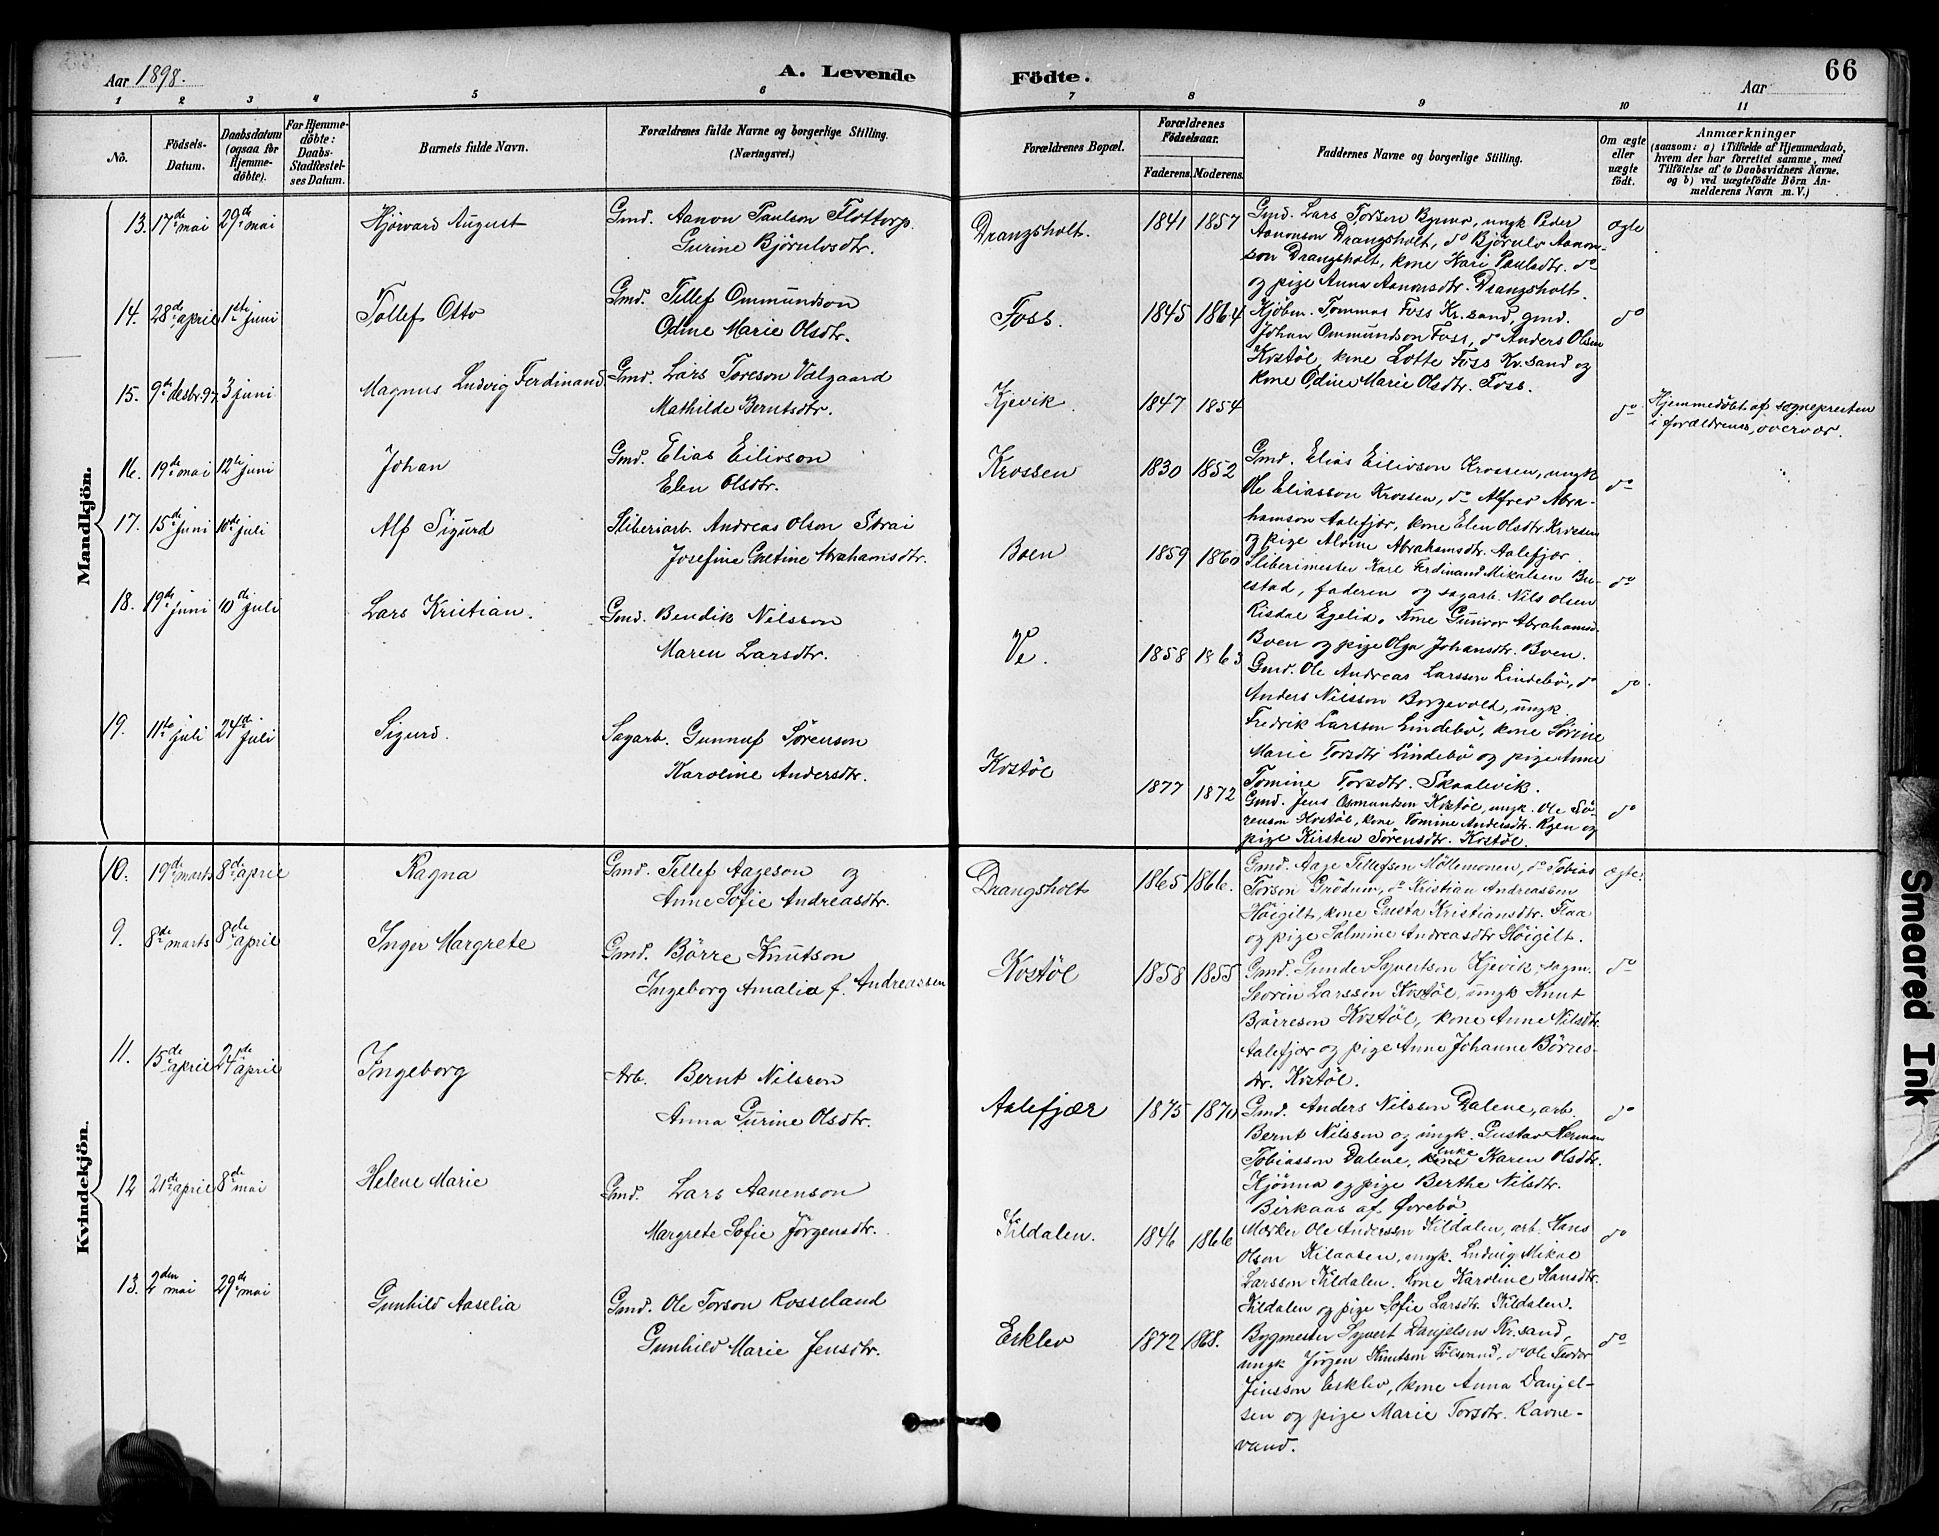 Aar 1898. A. Levende Födte. Aar 66
1 2 3 4 5 6 7 8 9 10 11
No.
Födsels-Datum.
Daabsdatum (ogsaa for Hjemme-döbte).
For Hjemme-döbte: Daabs-Stadfæstel-ses Datum.
Barnets fulde Navn.
Forældrenes fulde Navne og borgerlige Stilling.
(Næringsvei.)
Forældrenes Bopæl.
Forældrenes Födselsaar.
Faderens. Moderens.
Faddernes Navne og borgerlige Stilling.
Om ægte eller uægte födt.
Anmærkninger
(saasom: a) i Tilfælde af Hjemmedaab,
hvem der har forrettet samme, med
Tilføielse af to Daabsvidners Navne,
og b) ved uægtefödte Börn An-
melderens Navn m. V.)
Mandkjön.
13. 17de mai 29de mai Hjørvard August Gmd. Aanon Paulson Flottorp. Drangsholt. 1841 1857 Gmd. Lars Torsen Bynes, ungk Peder ægte
Gurine Bjørulvsdtr. Aanonson Drangsholt, do Bjørulv Aanon-
son Drangsholt, kone Kari Paulsdtr. do
og pige Anna Aanonsdtr. Drangsholt.
14. 28de april 1ste juni Tollef Otto Gmd. Tellef Ommundson Foss. 1845 1864 Kjøbm. Tommas Foss Kr.sand, gmd. do
Odine Marie Olsdtr. Johan Ommundson Foss, do Anders Olsen
Kostøl, kone Lotte Foss Kr.sand og
kone Odine Marie Olsdtr. Foss.
15. 9de desbr. 97 3 juni Magnus Ludvig Ferdinand Gmd. Lars Toreson Valgaard Kjevik. 1847 1854 do Hjemmedøbt af sognepresten
Mathilde Berntsdtr. i forældrenes overvær.
16. 19de mai 12te juni Johan Gmd. Elias Eilivson Krossen 1830 1852 Gmd. Elias Eilivson Krossen, ungk do
Elen Olsdtr. Ole Eliasson Krossen, do Alfred Abra-
hamson Aalefjær, kone Elen Olsdtr. Krossen
og pige Alvine Abrahamsdtr. Aalefjær.
17. 15de juni 10de juli Alf Sigurd Sliberiarb. Andreas Olson Boen 1859 1860 Sliberimester Karl Ferdinand Mikalsen Bu- do
Josefine Abrahamsdtr. estad, faderen og sagarb. Nils Olsen
Risdal Egelid, kone Gunvor Abrahamsd.
Boen og pige Olga Johansdtr. Boen.
18. 19de juni 10de juli Lars Kristian. Gmd. Bendik Nilsson Ve. 1858 1863 Gmd. Ole Andreas Larsson Lindebø, do do
Maren Larsdtr. Anders Nilsson Borgevold, ungk.
Fredrik Larsson Lindebø, kone Sørine
Marie Torsdtr. Lindebø og pige Anne
Tomine Torsdtr. Skaalevik.
19. 11te juli 24de juli Sigurd. Sagarb. Gunnuf Sørenson Kostøl 1877 1872 Gmd. Jens Osmundsen Kostøl, ungk. Ole Sø- do
Karoline Andersdtr. renson Kostøl, kone Tomine Andersdtr. Ryen og
pige Kirsten Sørensdtr. Kostøl.
Kvindekjön.
10. 19de marts 8de april Ragna Gmd. Tellef Aageson og Drangsholt 1865 1866. Gmd. Aage Tellefsen Møllemonen, do Tobias ægte.
Anne Sofie Andreasdtr. Torson Grødum, do Kristian Andreassen
Høigilt, kone Gusta Kristiansdtr. Flaa
og pige Salmine Andreasdtr Høigilt.
9. 8de marts 8de april Inger Margrete Gmd. Børre Knutson Kostøl 1858 1855 Gmd. Gunder Syvertson Kjevik, sagm. do
Ingeborg Amalia f. Andreassen Severin Larssen Kostøl, ungk Knut
Børreson Kostøl, kone Anne Nilsdtr.
Aalefjær og pige Anne Johanne Børres-
dtr. Kostøl.
11. 15de april 24de april Ingeborg Arb. Bernt Nilsson Aalefjær 1875 1870 Gmd. Anders Nilsson Dalene, arb. do
Anna Gurine Olsdtr. Bernt Nilsson og ungk. Gustav Herman
Tobiasson Dalene, enke Karen Olsdtr.
Kjønna og pige Berthe Nilsdtr.
Birkaas af Øvrebø.
12 21de april 8de mai Helene Marie Gmd. Lars Aanenson Kildalen. 1846 1866 Mærker Ole Andersen Kildalen, arb. Hans do
Margrete Sofie Jørgensdtr. Olson Kilaasen, ungk. Ludvig Mikal
Larsson Kildalen, kone Karoline Hansdtr.
Kildalen og pige Sofie Larsdtr. Kildalen.
13. 2den mai 29de mai Gunhild Aaselia Gmd. Ole Torson Rosseland Esklev 1872 1868. Bygmester Syvert Danjelsen Kr.sand, do
Gunhild Marie Jensdtr. ungk Jørgen Knutson Tolsvand, do Ole Teodor
Jensson Esklev, kone Anna Danjel-
sen og pige Marie Torsdtr. Ravne-
vand.
Smeared Ink